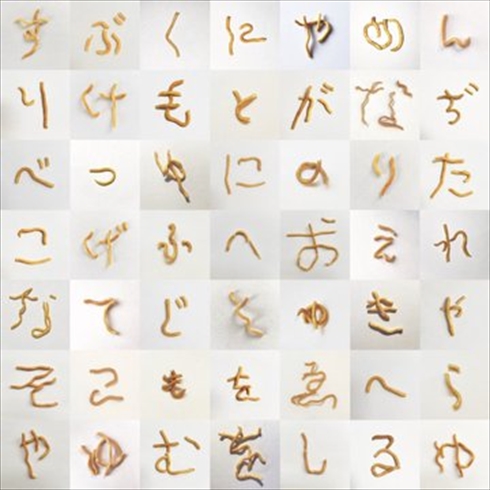 すぶくにやめん
りけもとがぢ
べっゆにのりた
こげふへおえれ
なてじゆきや
そこもをゑへら
やゆむをしるゆ